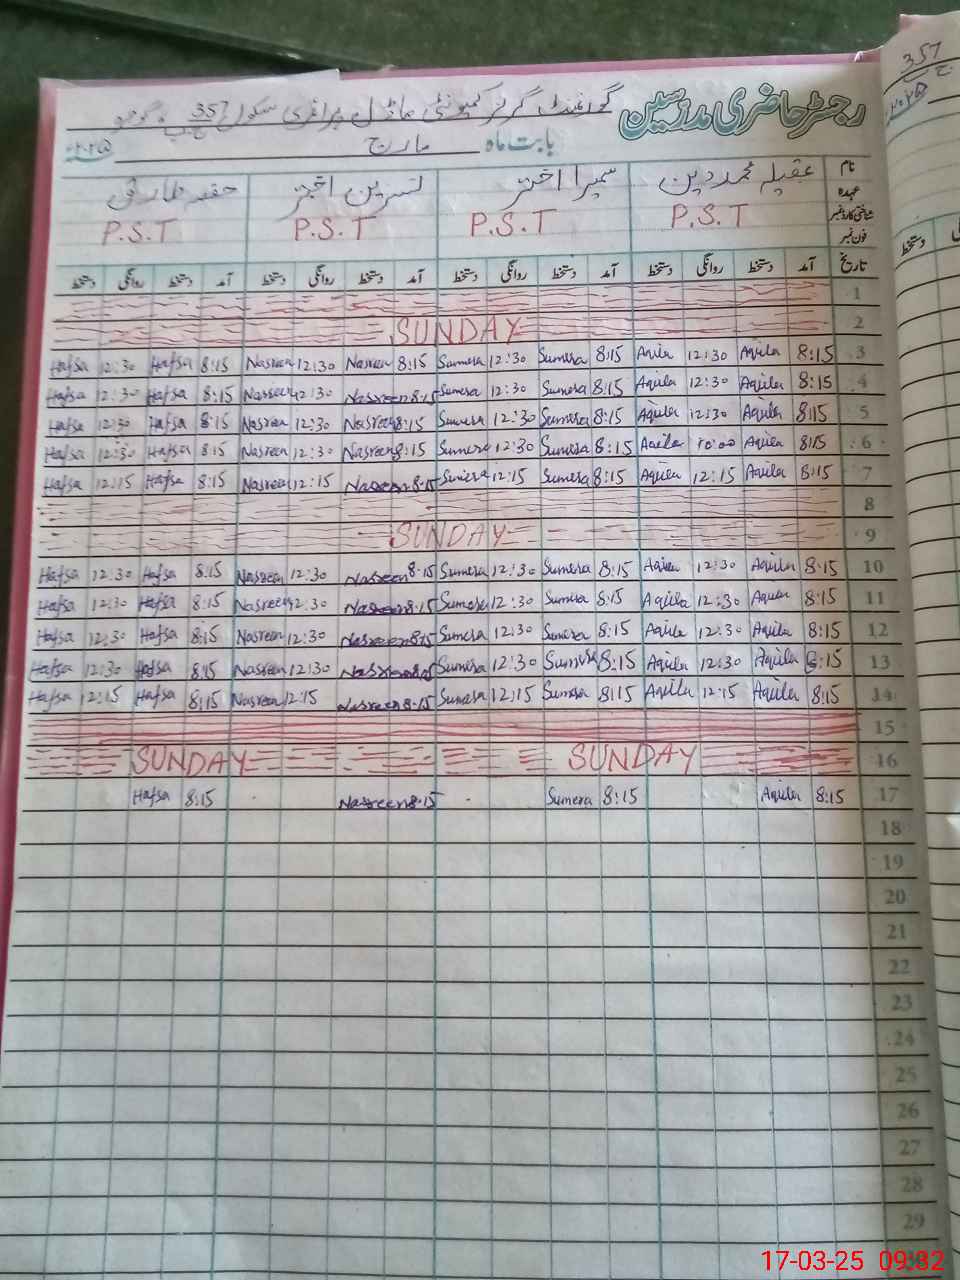 رجسٹر حاضری مدرسین گورنمنٹ گرلز کمیونٹی ماڈل پرائمری سکول 357 ج ب گوجرہ
بابت ماہ مارچ ۲۰۲۵
نام عقیلہ محمد دین سمیرا اختر نسرین اختر حفصہ طارق
عہدہ P.S.T P.S.T P.S.T P.S.T
شناختی کارڈ نمبر
فون نمبر
تاریخ آمد دستخط روانگی دستخط آمد دستخط روانگی دستخط آمد دستخط روانگی دستخط آمد دستخط روانگی دستخط
1
SUNDAY 2
Hafsa 12:30 Hafsa 8:15 Nasreen 12:30 Nasreen 8:15 Sumera 12:30 Sumera 8:15 Aqila 12:30 Aqila 8:15 3
Hafsa 12:30 Hafsa 8:15 Nasreen 12:30 Nasreen 8:15 Sumera 12:30 Sumera 8:15 Aqila 12:30 Aqila 8:15 4
Hafsa 12:30 Hafsa 8:15 Nasreen 12:30 Nasreen 8:15 Sumera 12:30 Sumera 8:15 Aqila 12:30 Aqila 8:15 5
Hafsa 12:30 Hafsa 8:15 Nasreen 12:30 Nasreen 8:15 Sumera 12:30 Sumera 8:15 Aqila 10:00 Aqila 8:15 6
Hafsa 12:15 Hafsa 8:15 Nasreen 12:15 Nasreen 8:15 Sumera 12:15 Sumera 8:15 Aqila 12:15 Aqila 8:15 7
8
SUNDAY 9
Hafsa 12:30 Hafsa 8:15 Nasreen 12:30 Nasreen 8:15 Sumera 12:30 Sumera 8:15 Aqila 12:30 Aqila 8:15 10
Hafsa 12:30 Hafsa 8:15 Nasreen 12:30 Nasreen 8:15 Sumera 12:30 Sumera 8:15 Aqila 12:30 Aqila 8:15 11
Hafsa 12:30 Hafsa 8:15 Nasreen 12:30 Nasreen 8:15 Sumera 12:30 Sumera 8:15 Aqila 12:30 Aqila 8:15 12
Hafsa 12:30 Hafsa 8:15 Nasreen 12:30 Nasreen 8:15 Sumera 12:30 Sumera 8:15 Aqila 12:30 Aqila 8:15 13
Hafsa 12:15 Hafsa 8:15 Nasreen 12:15 Nasreen 8:15 Sumera 12:15 Sumera 8:15 Aqila 12:15 Aqila 8:15 14
15
SUNDAY SUNDAY 16
Hafsa 8:15 Nasreen 8:15 Sumera 8:15 Aqila 8:15 17
18
19
20
21
22
23
24
25
26
27
28
29
357
ج
۲۰۲۵
دستخط
17-03-25 09:32